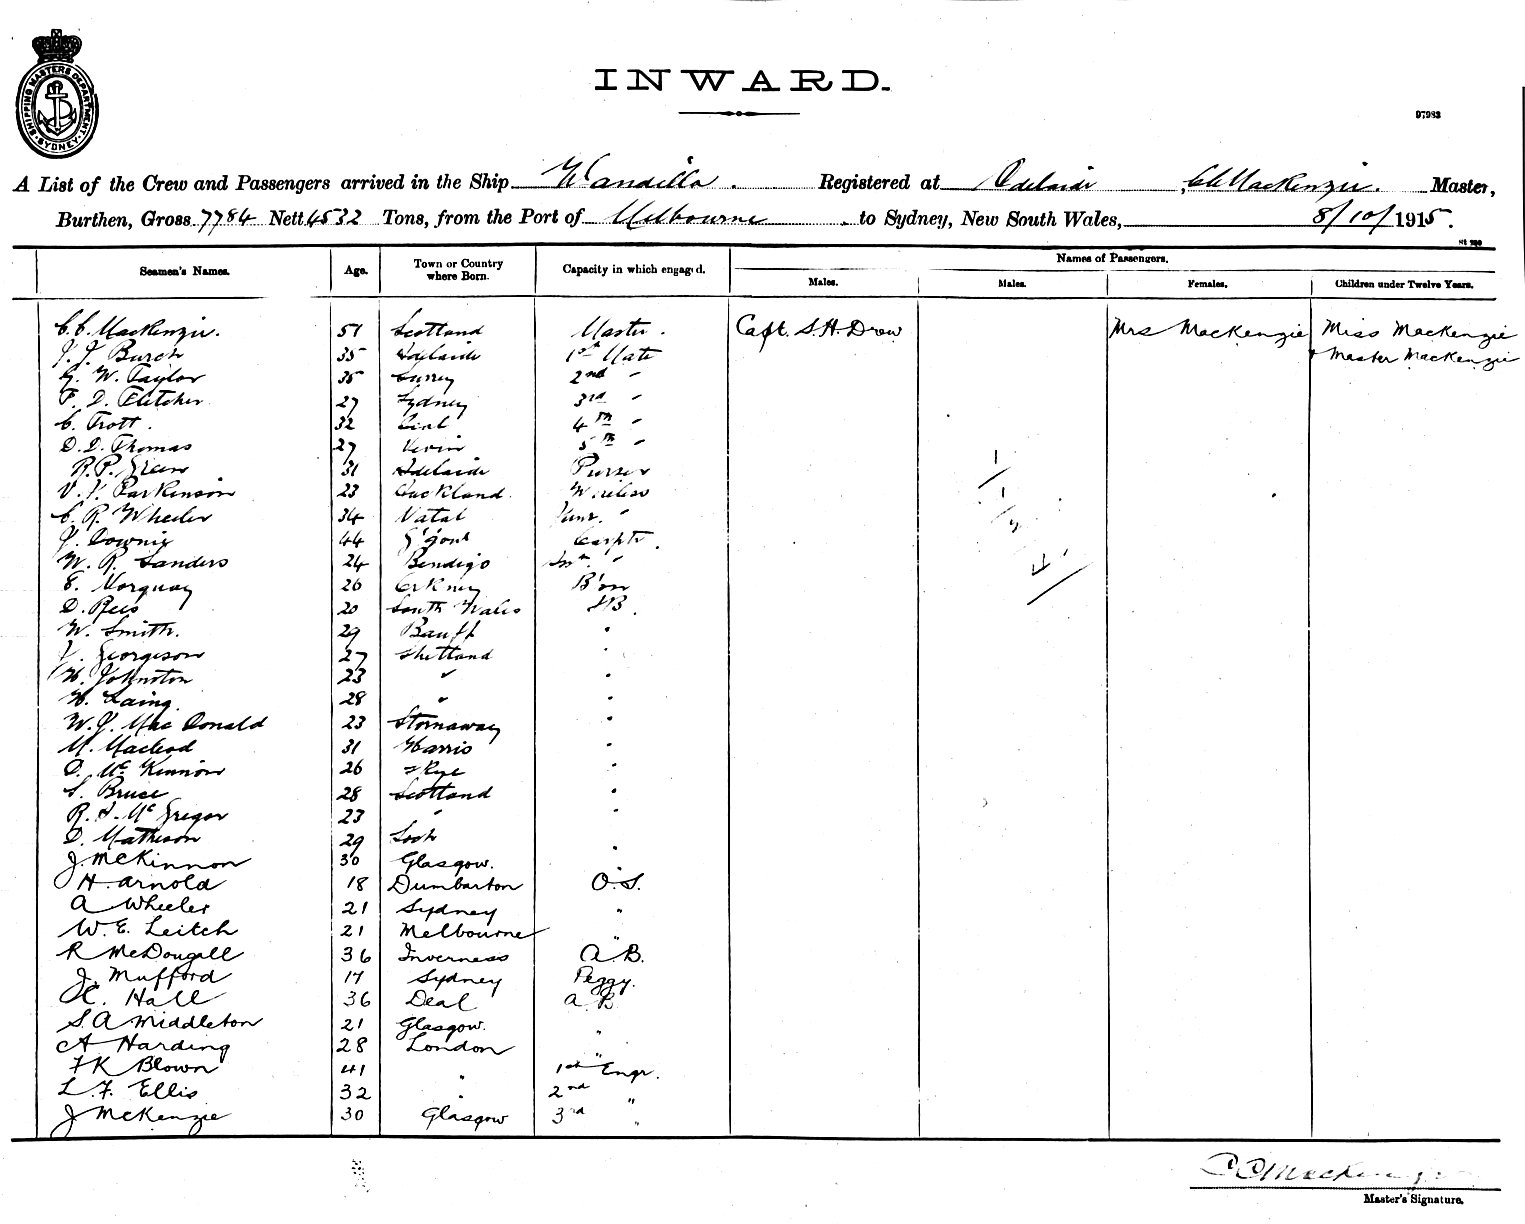 SHIPPING MASTERS DEPARTMENT SYDNEY
INWARD.
97983
A List of the Crew and Passengers arrived in the Ship Wandilla. Registered at Adelaide, C.C. MacKenzie. Master,
Burthen, Gross 7784 Nett 4532 Tons, from the Port of Melbourne to Sydney, New South Wales, 8/10/1915.
Seamen's Names. Age. Town or Country where Born. Capacity in which engaged. Names of Passengers.
Males. Males. Females. Children under Twelve Years.
C.C. MacKenzie. 51 Scotland Master. Capt. S.H. Drew Mrs MacKenzie Miss MacKenzie
J.J. Burch 35 Adelaide 1st Mate + Master MacKenzie
G. W. Taylor 35 Surrey 2nd "
F. D. Fletcher 27 Sydney 3rd "
C. Trott. 32 4th "
D.D. Thomas 27 5th "
R.P. Green 31 Adelaide Purser
V. Y. Parkinson 23 Auckland. Wireless
C. R. Wheeler 34 Natal Junr. "
J. Downie 44 G'gow Carptr.
W. R. Sanders 24 Bendigo "
E. Norquay 26 Orkney B'sn
D. Rees 20 South Wales AB.
W. Smith. 29 Banff "
Georgeson 27 Shetland "
W. Johnston 23 " "
W. Laing. 28 " "
W.J. MacDonald 23 Stornaway "
M. Macleod 31 Harris "
D. McKinnon 26 Skye "
S. Bruce 28 Scotland "
R. S. McGregor 23 " "
D. Matheson 29 Loch "
J. McKinnon 30 Glasgow. "
H. Arnold 18 Dumbarton O.S.
A Wheeler 21 Sydney "
W. E. Leitch 21 Melbourne "
R McDougall 36 Inverness A.B.
J. Mufford 17 Sydney Peggy.
C. Hall 36 Deal A B
S. A Middleton 21 Glasgow. "
A Harding 28 London "
F K Blown 41 " 1st Engr.
L. F. Ellis 32 " 2nd "
J McKenzie 30 Glasgow 3rd "
C C MacKenzie
Master's Signature.